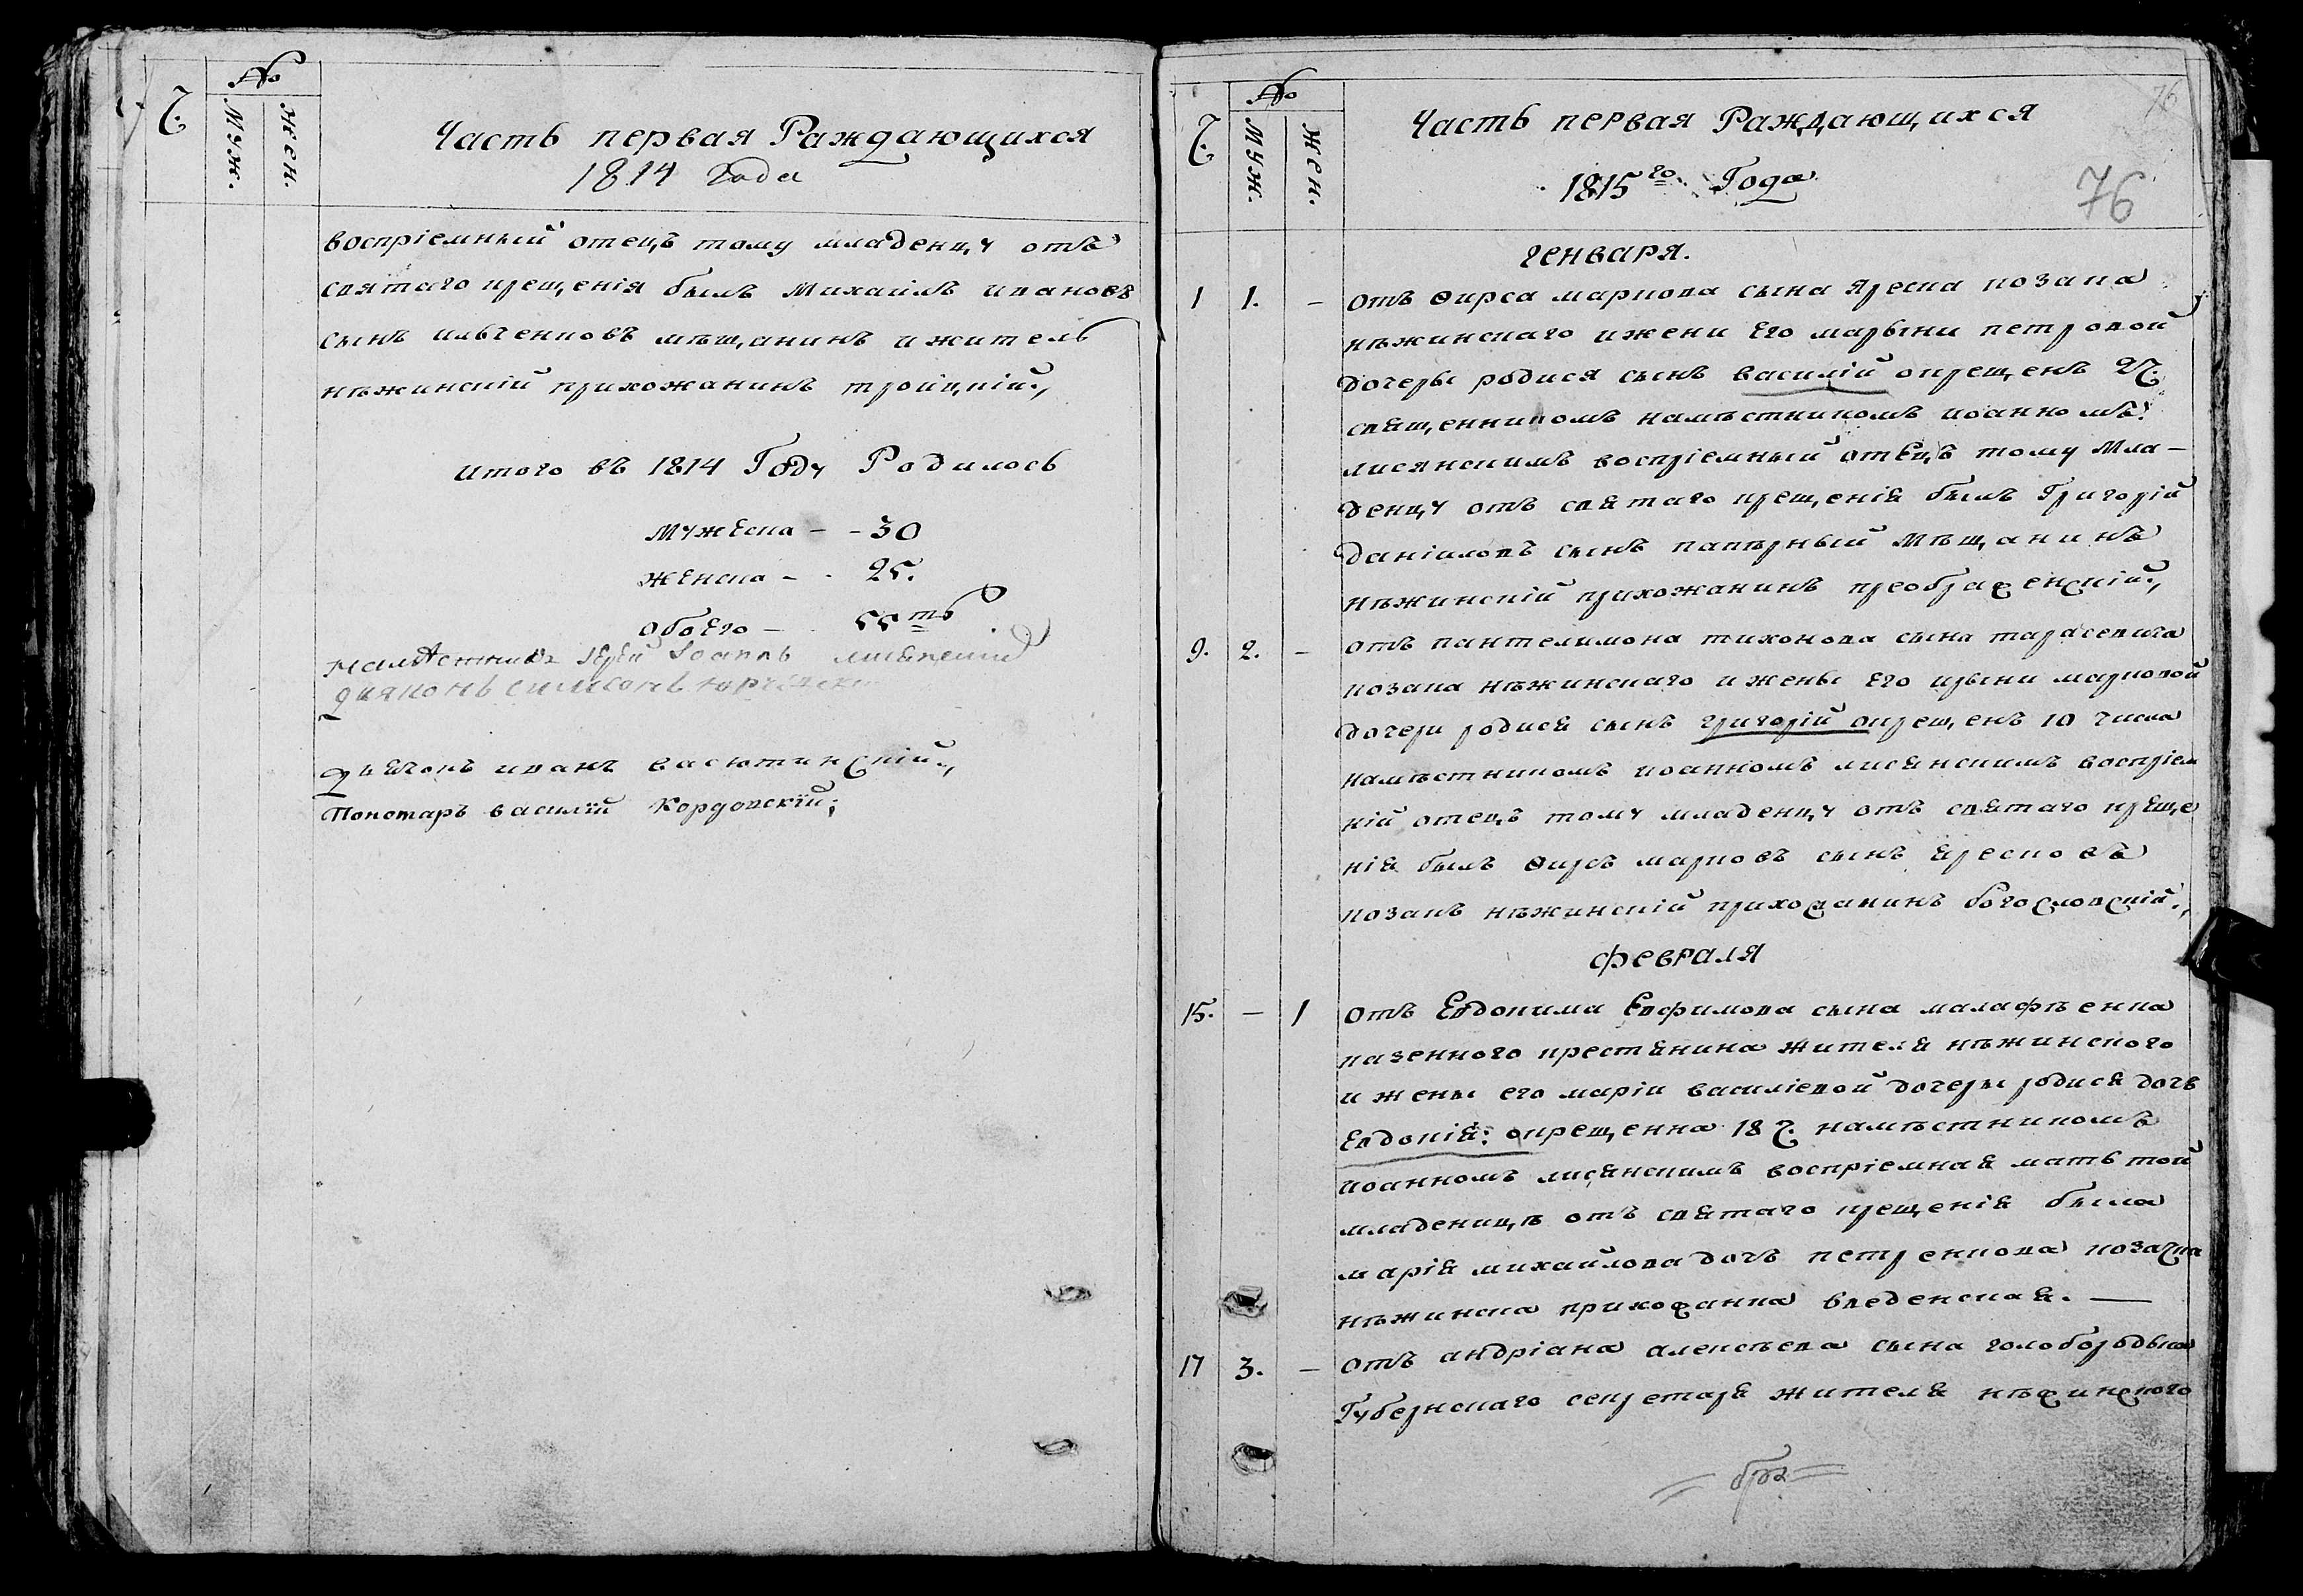 Ч.
№
Муж.
Жен.
Часть первая Раждающихся
1814 Года
воспріемный отецъ тому младенцу отъ
святаго крещенія былъ Михаилъ ивановъ
сынъ ильченковъ мѣщанинъ и житель
нѣжинскій прихожанинъ тройцкій.,
итого въ 1814 Году Родилось
мужеска - - 30
женска - . 25.
обоего - . 55ть
намѣстникъ Іерей Іоаннъ лисянскій
діяконъ симеонъ
дьячокъ иванъ васютинскій.,
Понотаръ василій Кордовскій;
76
Ч.
№
Муж.
Жен.
Часть первая Раждающихся
1815го. Года
76
генваря.
1 1. - отъ ѳирса маркова сына яреска козака
нѣжинскаго и жени Его марыни петровой
дочеры родися сынъ василій окрещенъ 2 Ч.
священникомъ намѣстникомъ иоанномъ
лисянскимъ воспріемный отецъ тому Мла-
денцу отъ святаго крещенія былъ Григорій
даніиловъ сынъ папѣрный Мѣщанинъ
нѣжинскій прихожанинъ преображенскій.,
9. 2. - отъ пантелимона тихонова сына тарасевича
козака нѣжинскаго и жены Его ирыни марковой
дочери родися сынъ григорій окрещенъ 10 числа
намѣстникомъ иоанномъ лисянскимъ воспріем
ній отецъ тому младенцу отъ святаго креще
нія былъ ѳирсъ марковъ сынъ яресковъ
козакъ нѣжинскій прихожанинъ богословскій.,
февраля
15. - 1 отъ Евдокима Евфимова сына малафѣенка
казенного крестянина жителя нѣжинского
и жены его маріи василіевой дочеры родися дочь
Евдокія: окрещенна 18 Ч. намѣстникомъ
иоанномъ лисянскимъ воспріемная мать той
младеницѣ отъ святаго крещенія была
марія михайлова дочь петренкова козачка
нѣжинска прихожанка введенская. —
17 3. - отъ андріана алексѣева сына голобородька
Губернскаго секретаря жителя нѣжинского